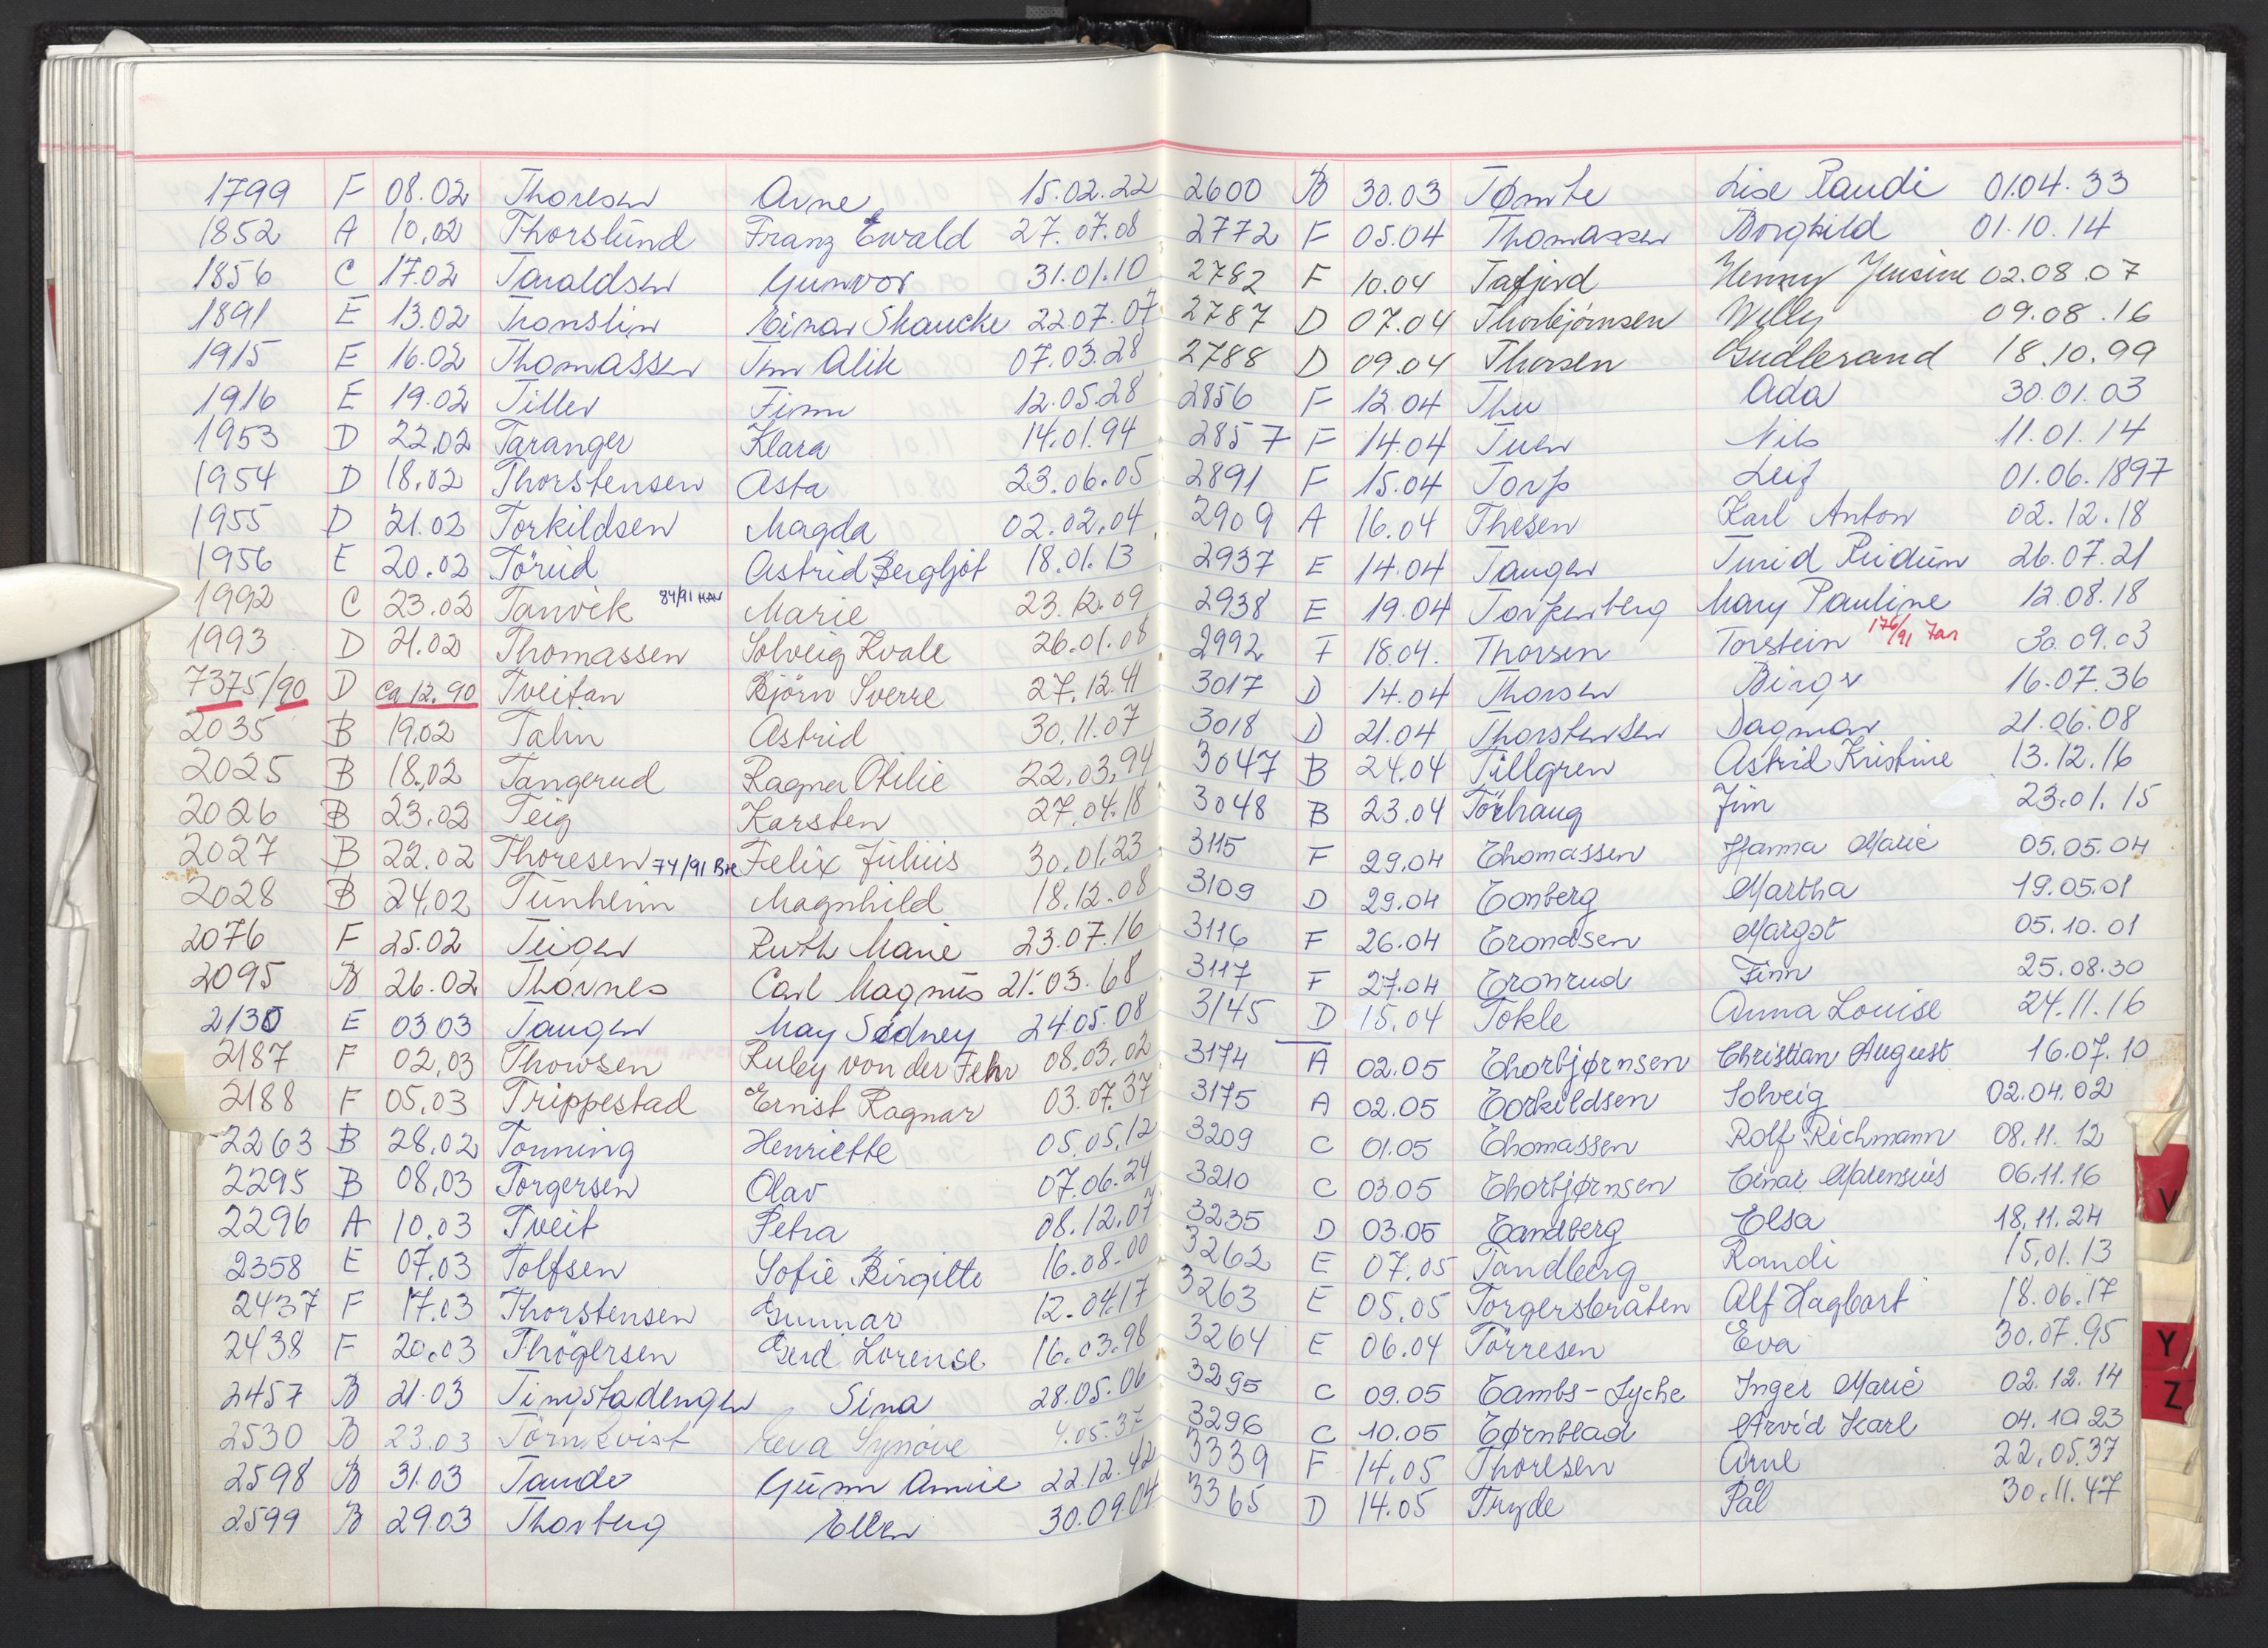 1799 F 08.02 Thoresen Arne 15.02.22
1852 A 10.02 Thorslund Franz Ewald 27.07.08
1856 C 17.02 Taraldsen Gunvor 31.01.10
1891 E 13.02 Tronslin Einar Skancke 22.07.07
1915 E 16.02 Thomassen Tim Alik 07.03.28
1916 E 19.02 Tiller Finn 12.05.28
1953 D 22.02 Taranger Klara 14.01.94
1954 D 18.02 Thorstensen Asta 23.06.05
1955 D 21.02 Torkildsen Magda 02.02.04
1956 E 20.02 Törud Astrid Bergljot 18.01.13
1992 C 23.02 Tanvik 84/91 Marie 23.12.09
1993 D 21.02 Thomassen Solveig Kvale 26.01.08
7375/90 D ca 12.90 Tveitan Bjørn Sverre 27.12.41
2035 B 19.02 Tahn Astrid 30.11.07
2025 B 18.02 Tangerud Ragna Otilie 22.03.94
2026 B 23.02 Teig Karsten 27.04.18
2027 B 22.02 Thoresen 74/91 Felix Julius 30.01.23
2028 B 24.02 Tunheim Magnhild 18.12.08
2076 F 25.02 Teigen Ruth Marie 23.07.16
2095 B 26.02 Thornes Carl Magnus 21.03.68
2130 E 03 03 Tangen May Sidney 24 05.08
2187 F 02.03 Thowsen Ruby von der Fehr 08.03.02
2188 F 05.03 Trippestad Ernst Ragnar 03.07.37
2263 B 28.02 Tonning Henriette 05.05.12
2295 B 08.03 Torgersen Olav 07.06.24
2296 A 10.03 Tveit Petra 08.12.07
2358 E 07.03 Tolfsen Sofie Birgitte 16.08.00
2437 F 17.03 Thorstensen Gunnar 12.04.17
2438 F 20.03 Thögersen Gerd Lorense 16.03.98
2457 B 21.03 Tingstadengen Sina 28.05.06
2530 B 23.03 Törnkvist Eva Synöve 4.05.37
2598 B 31.03 Tande Gunn Annie 22.12.42
2599 B 29.03 Thorberg Ellen 30.09.04
2600 B 30.03 Tømte Lise Randi 01.04.33
2772 F 05.04 Thomassen Borghild 01.10.14
2782 F 10.04 Tafjord Henny Jensine 02.08.07
2787 D 07.04 Thorbjørnsen Willy 09.08.16
2788 D 09.04 Thorsen Gudlerand 18.10.99
2856 F 12.04 Thu Ada 30.01.03
2857 F 14.04 Tuen Nils 11.01.14
2891 F 15.04 Torp Leif 01.06.1897
2909 A 16.04 Thesen Karl Anton 02.12.18
2937 E 14.04 Tangen Turid Reidun 26.07.21
2938 E 19.04 Torkenberg Mary Pauline 12.08.18
2992 F 18.04. Thorsen Torstein 176/91 Jan 30.09.03
3017 D 14.04 Thorsen Birger 16.07.36
3018 D 21.04 Thorstensen Dagmar 21.06.08
3047 B 24.04 Tillgren Astrid Kristine 13.12.16
3048 B 23.04 Törhaug Jim 23.01.15
3115 F 29.04 Thomassen Hanna Marie 05.05.04
3109 D 29.04 Tonberg Martha 19.05.01
3116 F 26.04 Trondsen Margot 05.10.01
3117 F 27.04 Tronrud Finn 25.08.30
3145 D 15.04 Tokle Anna Louise 24.11.16
3174 A 02.05 Thorbjørnsen Christian August 16.07.10
3175 A 02.05 Torkildsen Solveig 02.04.02
3209 C 01.05 Thomassen Rolf Richmann 08.11.12
3210 C 03.05 Thorbjørnsen Einar Marensius 06.11.16
3235 D 03.05 Tandberg Elsa 18.11.24
3262 E 07.05 Tandberg Randi 15.01.13
3263 E 05.05 Torgersbråten Alf Hagbart 18.06.17
3264 E 06.04 Törresen Eva 30.07.95
3295 C 09.05 Tambs-Lyche Inger Marie 02.12.14
3296 C 10.05 Tørnblad Arvid Karl 04.10 23
3339 F 14.05 Thoresen Arne 22.05.37
3365 D 14.05 Tryde Pål 30.11.47
V
Y
Z